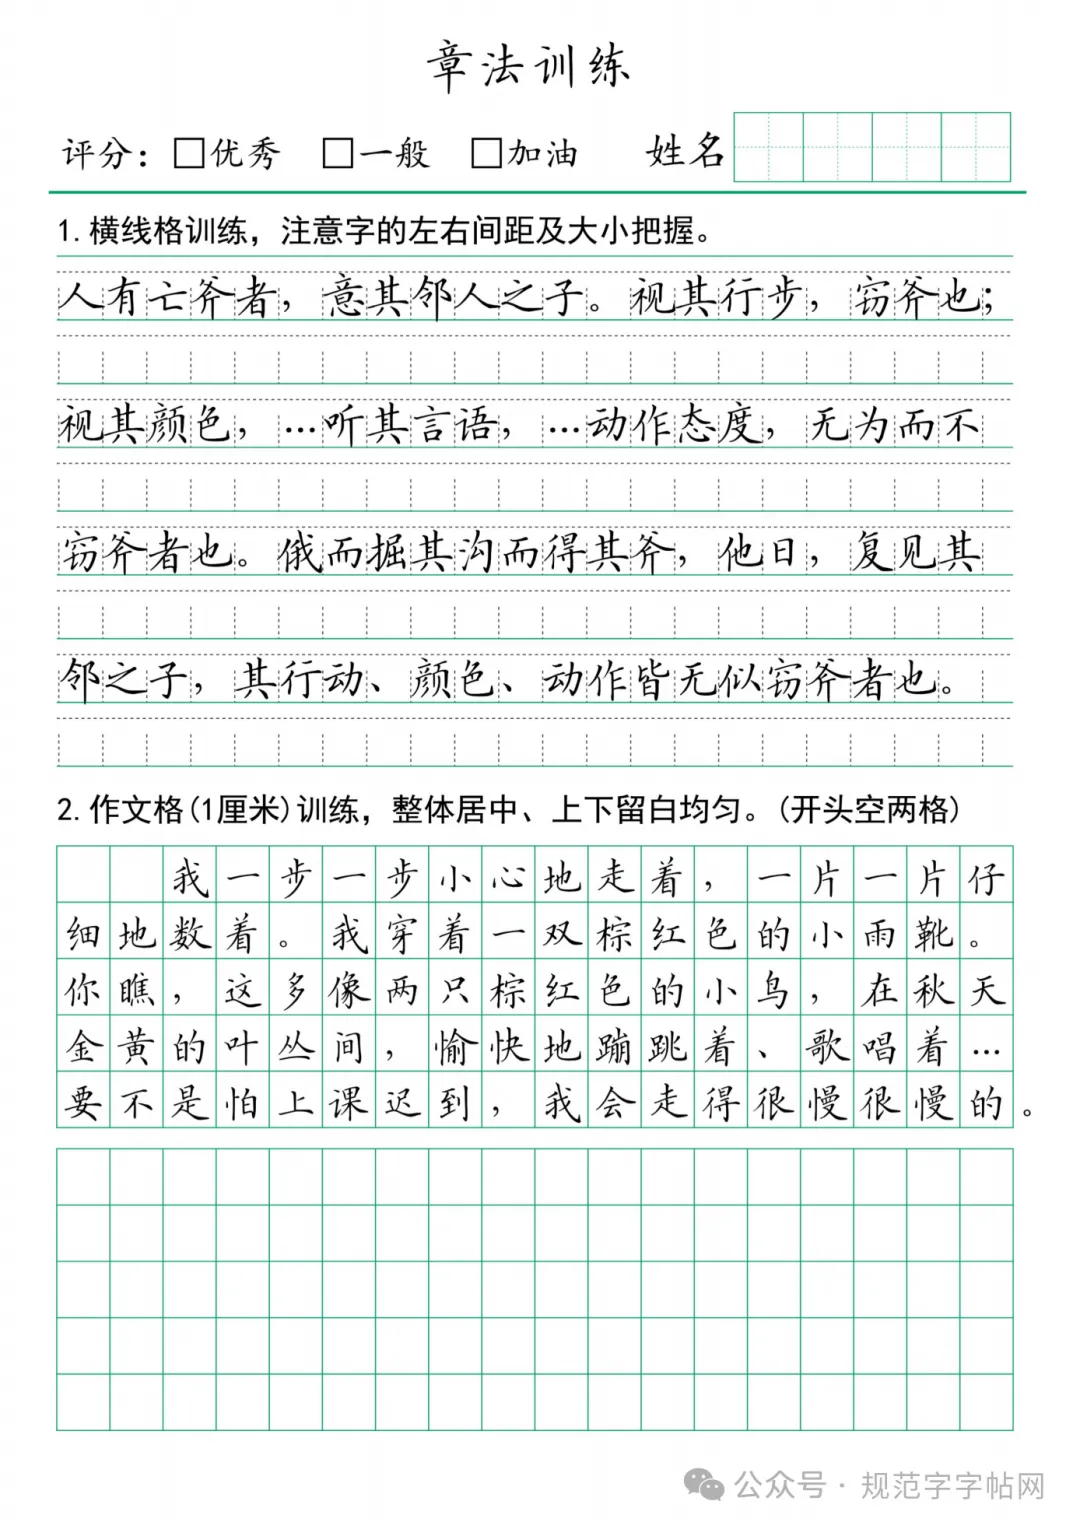 章法训练
评分：□优秀 □一般 □加油 姓名
1.横线格训练，注意字的左右间距及大小把握。
人有亡斧者，意其邻人之子。视其行步，窃斧也；
视其颜色，…听其言语，…动作态度，无为而不
窃斧者也。俄而掘其沟而得其斧，他日，复见其
邻之子，其行动、颜色、动作皆无似窃斧者也。
2.作文格(1厘米)训练，整体居中、上下留白均匀。(开头空两格)
我一步一步小心地走着，一片一片仔
细地数着。我穿着一双棕红色的小雨靴。
你瞧，这多像两只棕红色的小鸟，在秋天
金黄的叶丛间，愉快地蹦跳着、歌唱着…
要不是怕上课迟到，我会走得很慢很慢的。
公众号·规范字字帖网